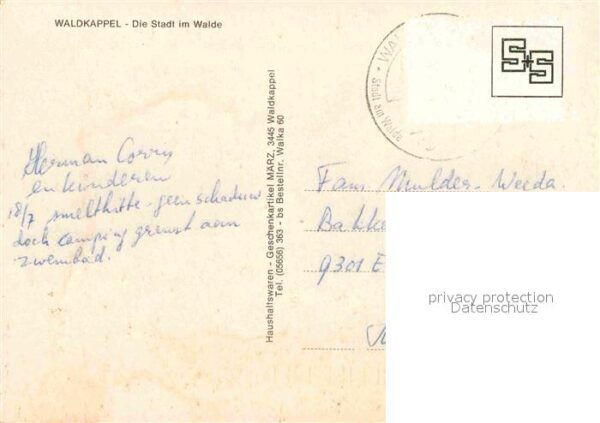 WALDKAPPEL - Die Stadt im Walde
S+S
WAL
Stadt am Walde
Herman Corry
en kinderen
18/7 smelthitte - geen schaduw
doch camping grenst aan
zwembad.
Haushaltswaren - Geschenkartikel MÄRZ, 3445 Waldkappel
Tel. (05656) 363 - bs Bestellnr. Walka 60
Fam Mulder-Weeda.
9301 E
privacy protection
Datenschutz